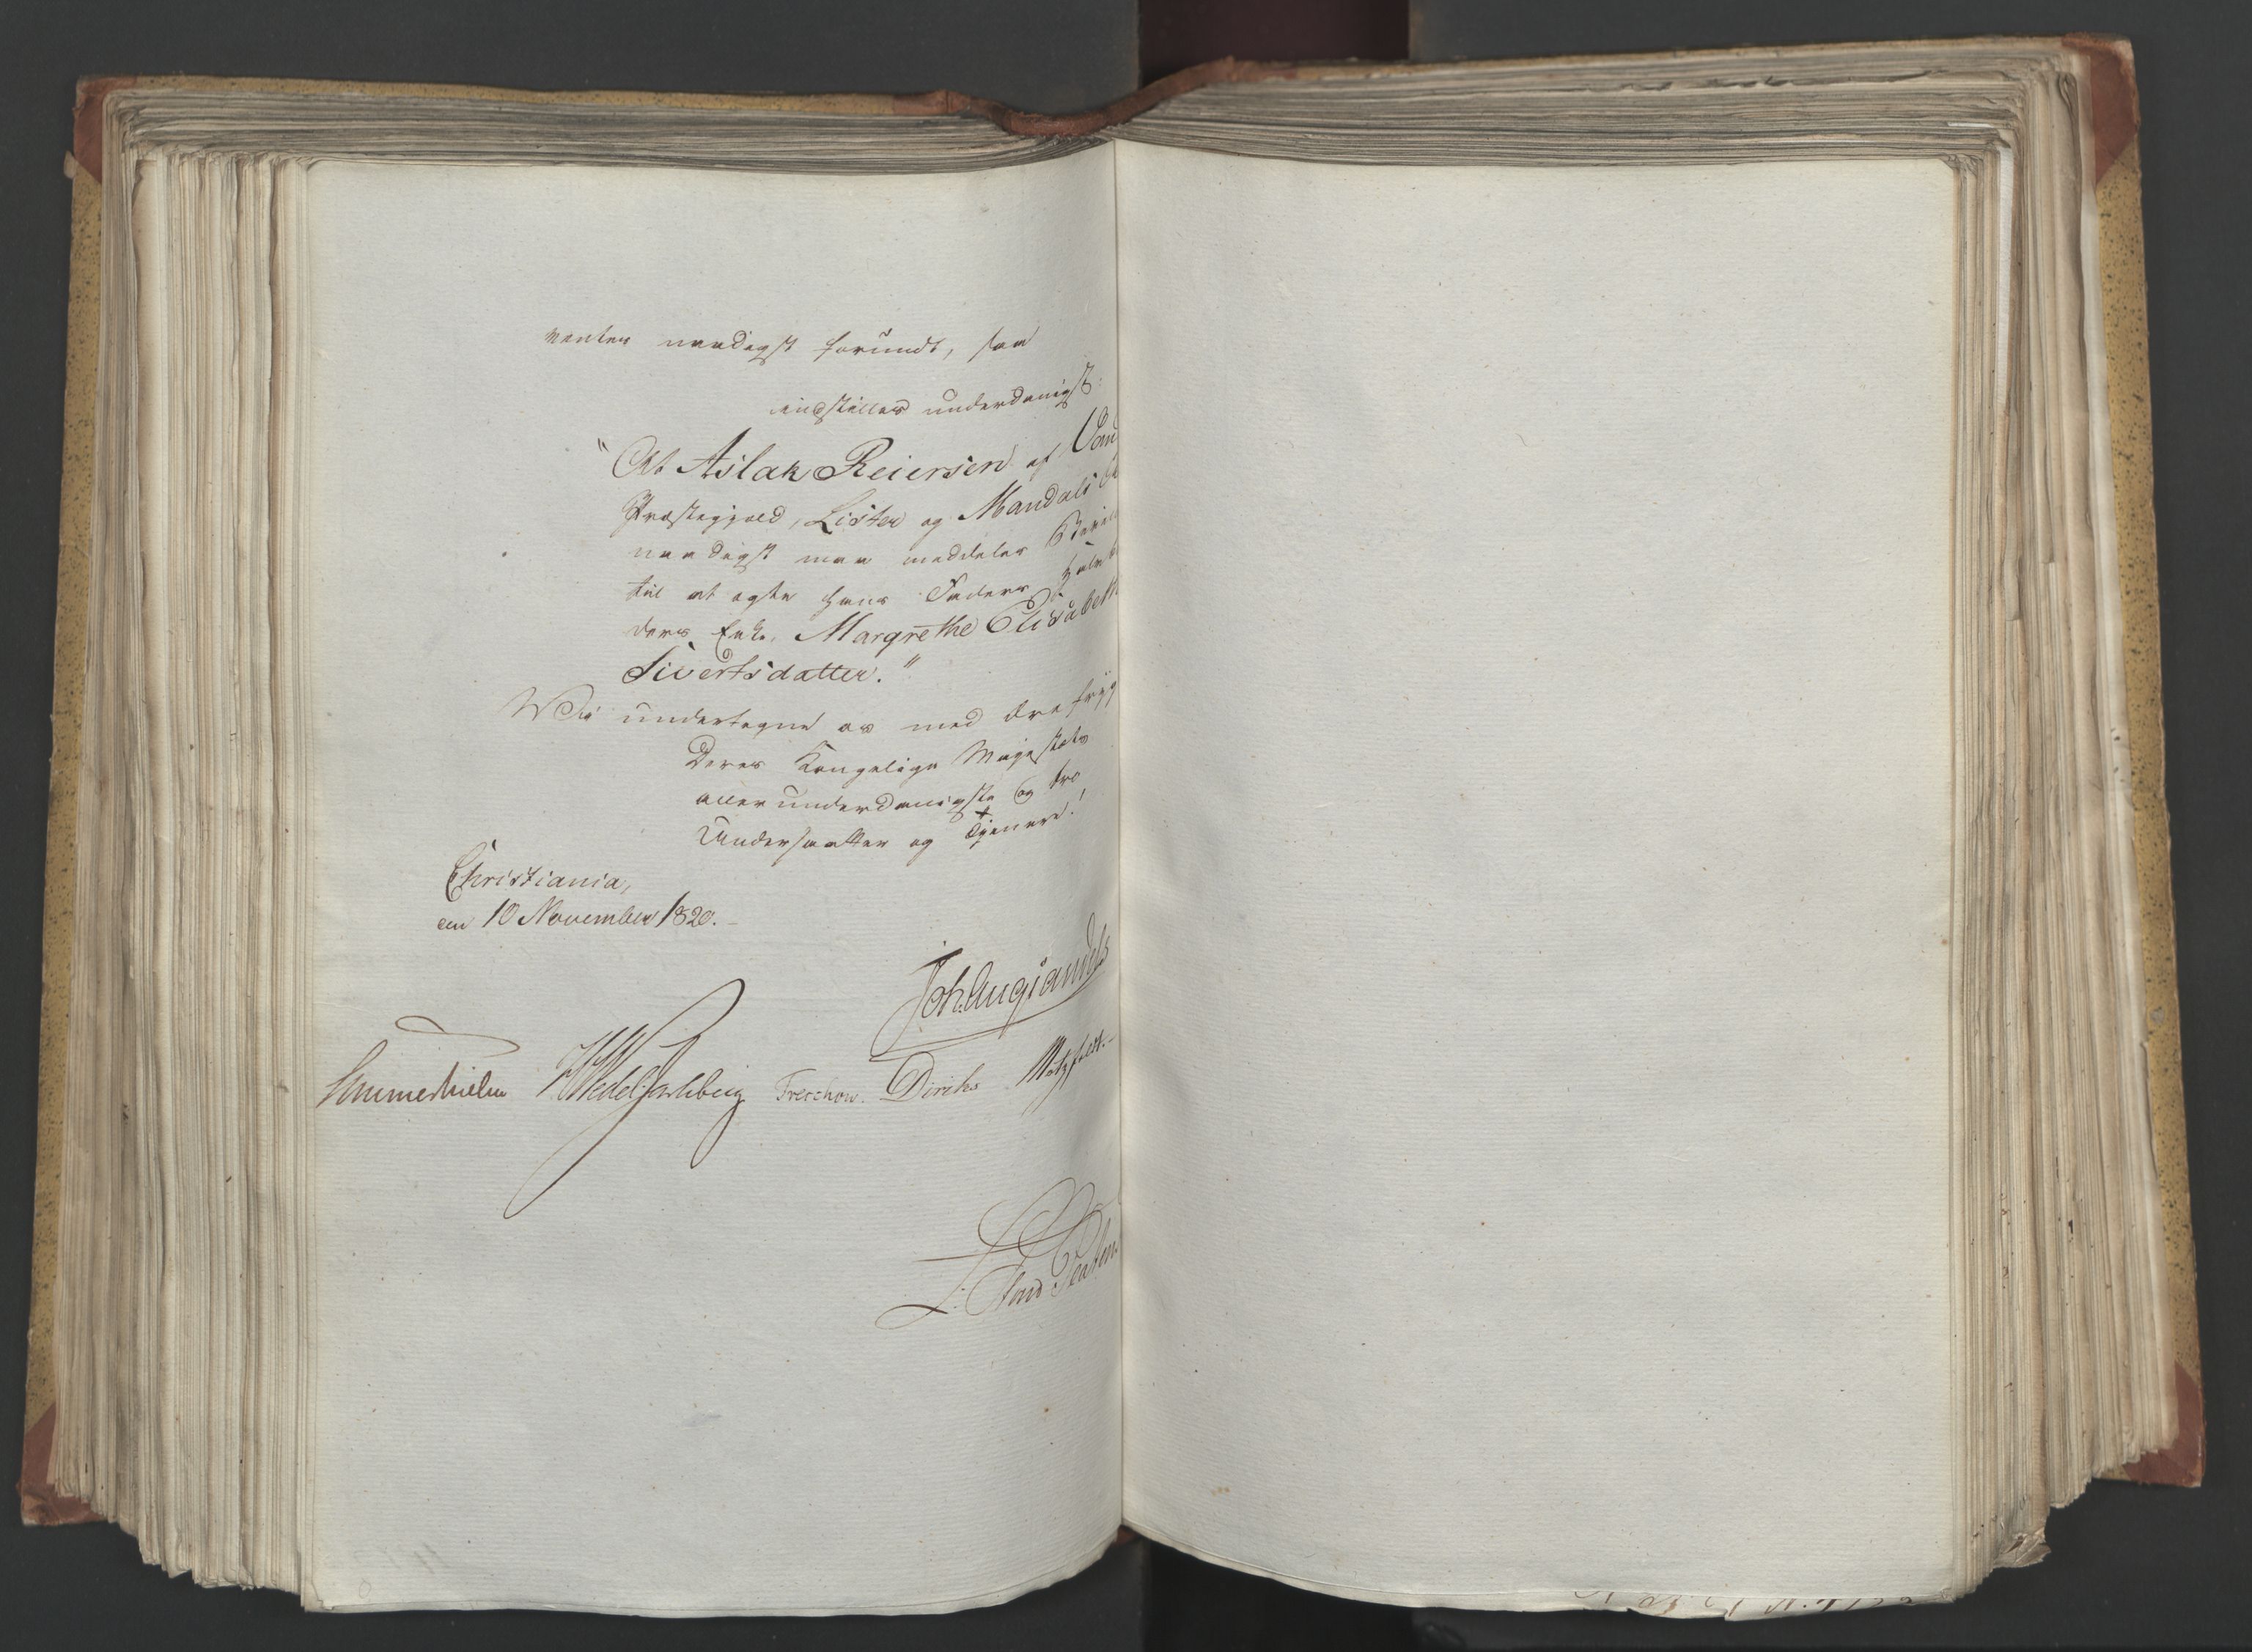 venter naadigst forundt, saa
indstilles underdanigst:
"At Aslak Reiersen af
Præstegjeld, Lister og Mandals
naadigst maa meddeles
til at ægte hans Faders
ders Enke, Margrethe Elisabeth
Sivertsdatter."
Vi undertegne os med
Deres Kongelige Majestæts
allerunderdanigste og tro
Undersaatter og Tjenere!
Christiania,
den 10 November 1820.
Joh. Aug. Sandels
Sommerhielm HWedel Jarlsberg Treschow. Diriks Motzfeldt.